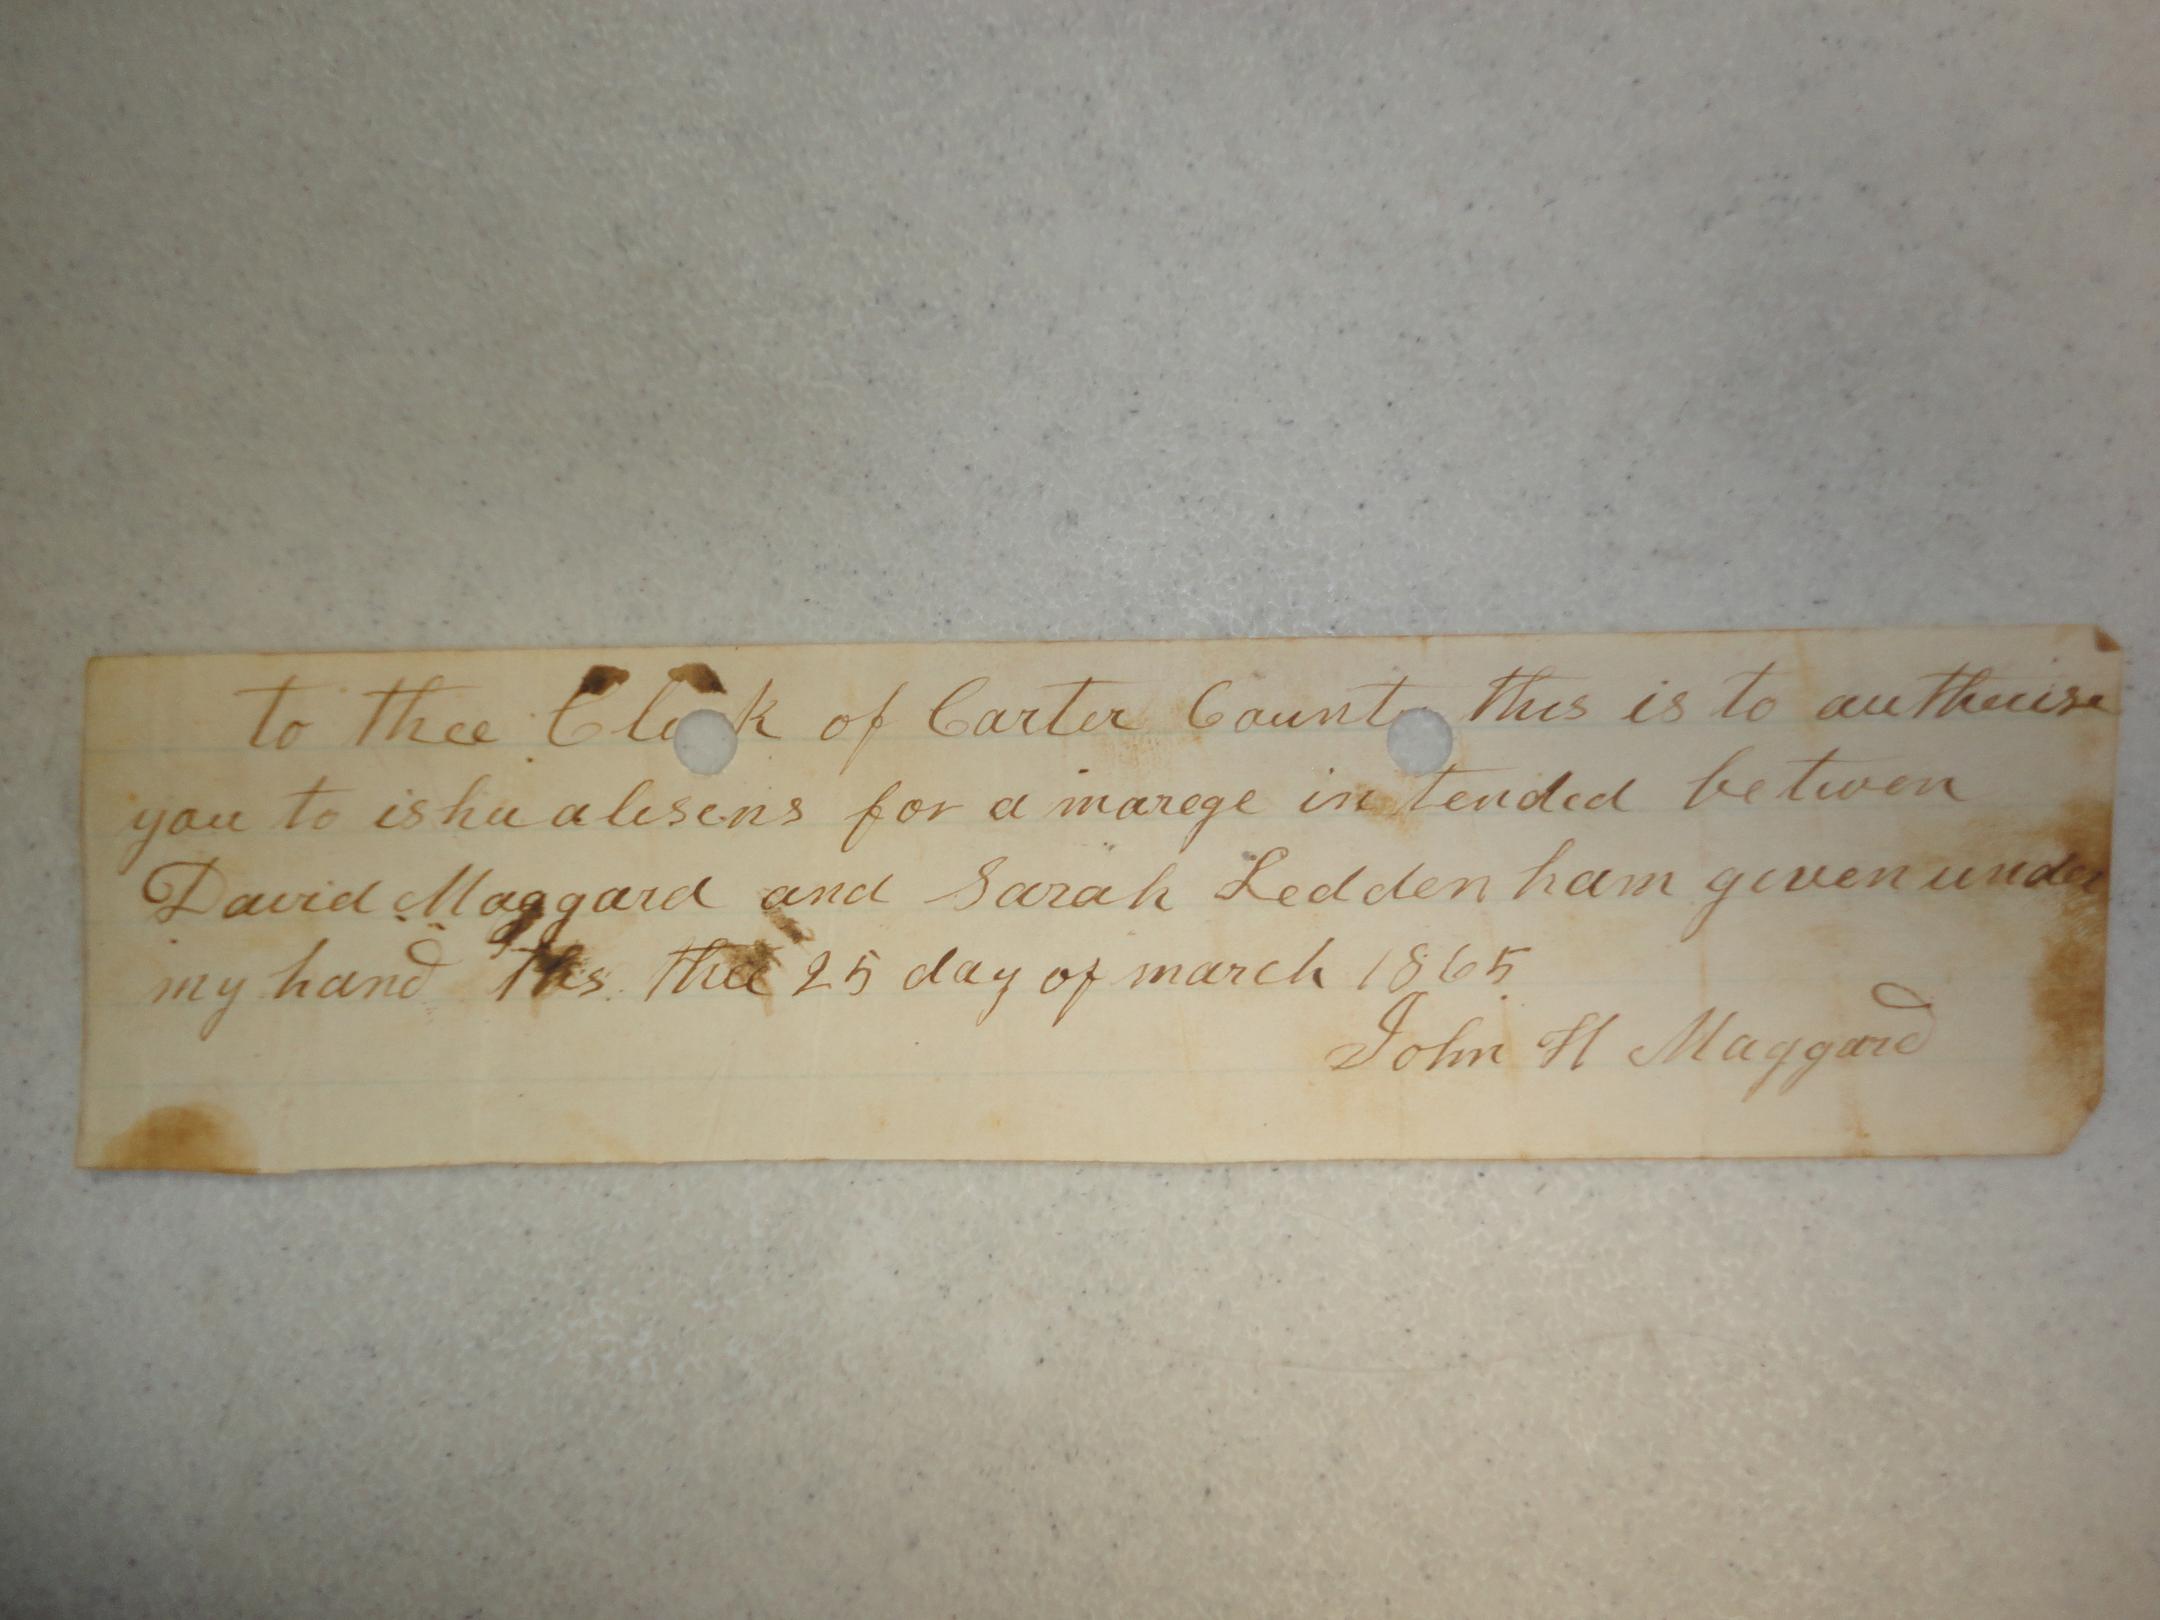 to thee Clark of Carter County this is to autheuise
you to ishu a lisens for a marege in tended betwen
David Maggard and Sarah Leddenham given under
my hand this thee 25 day of march 1865
John H Maggard